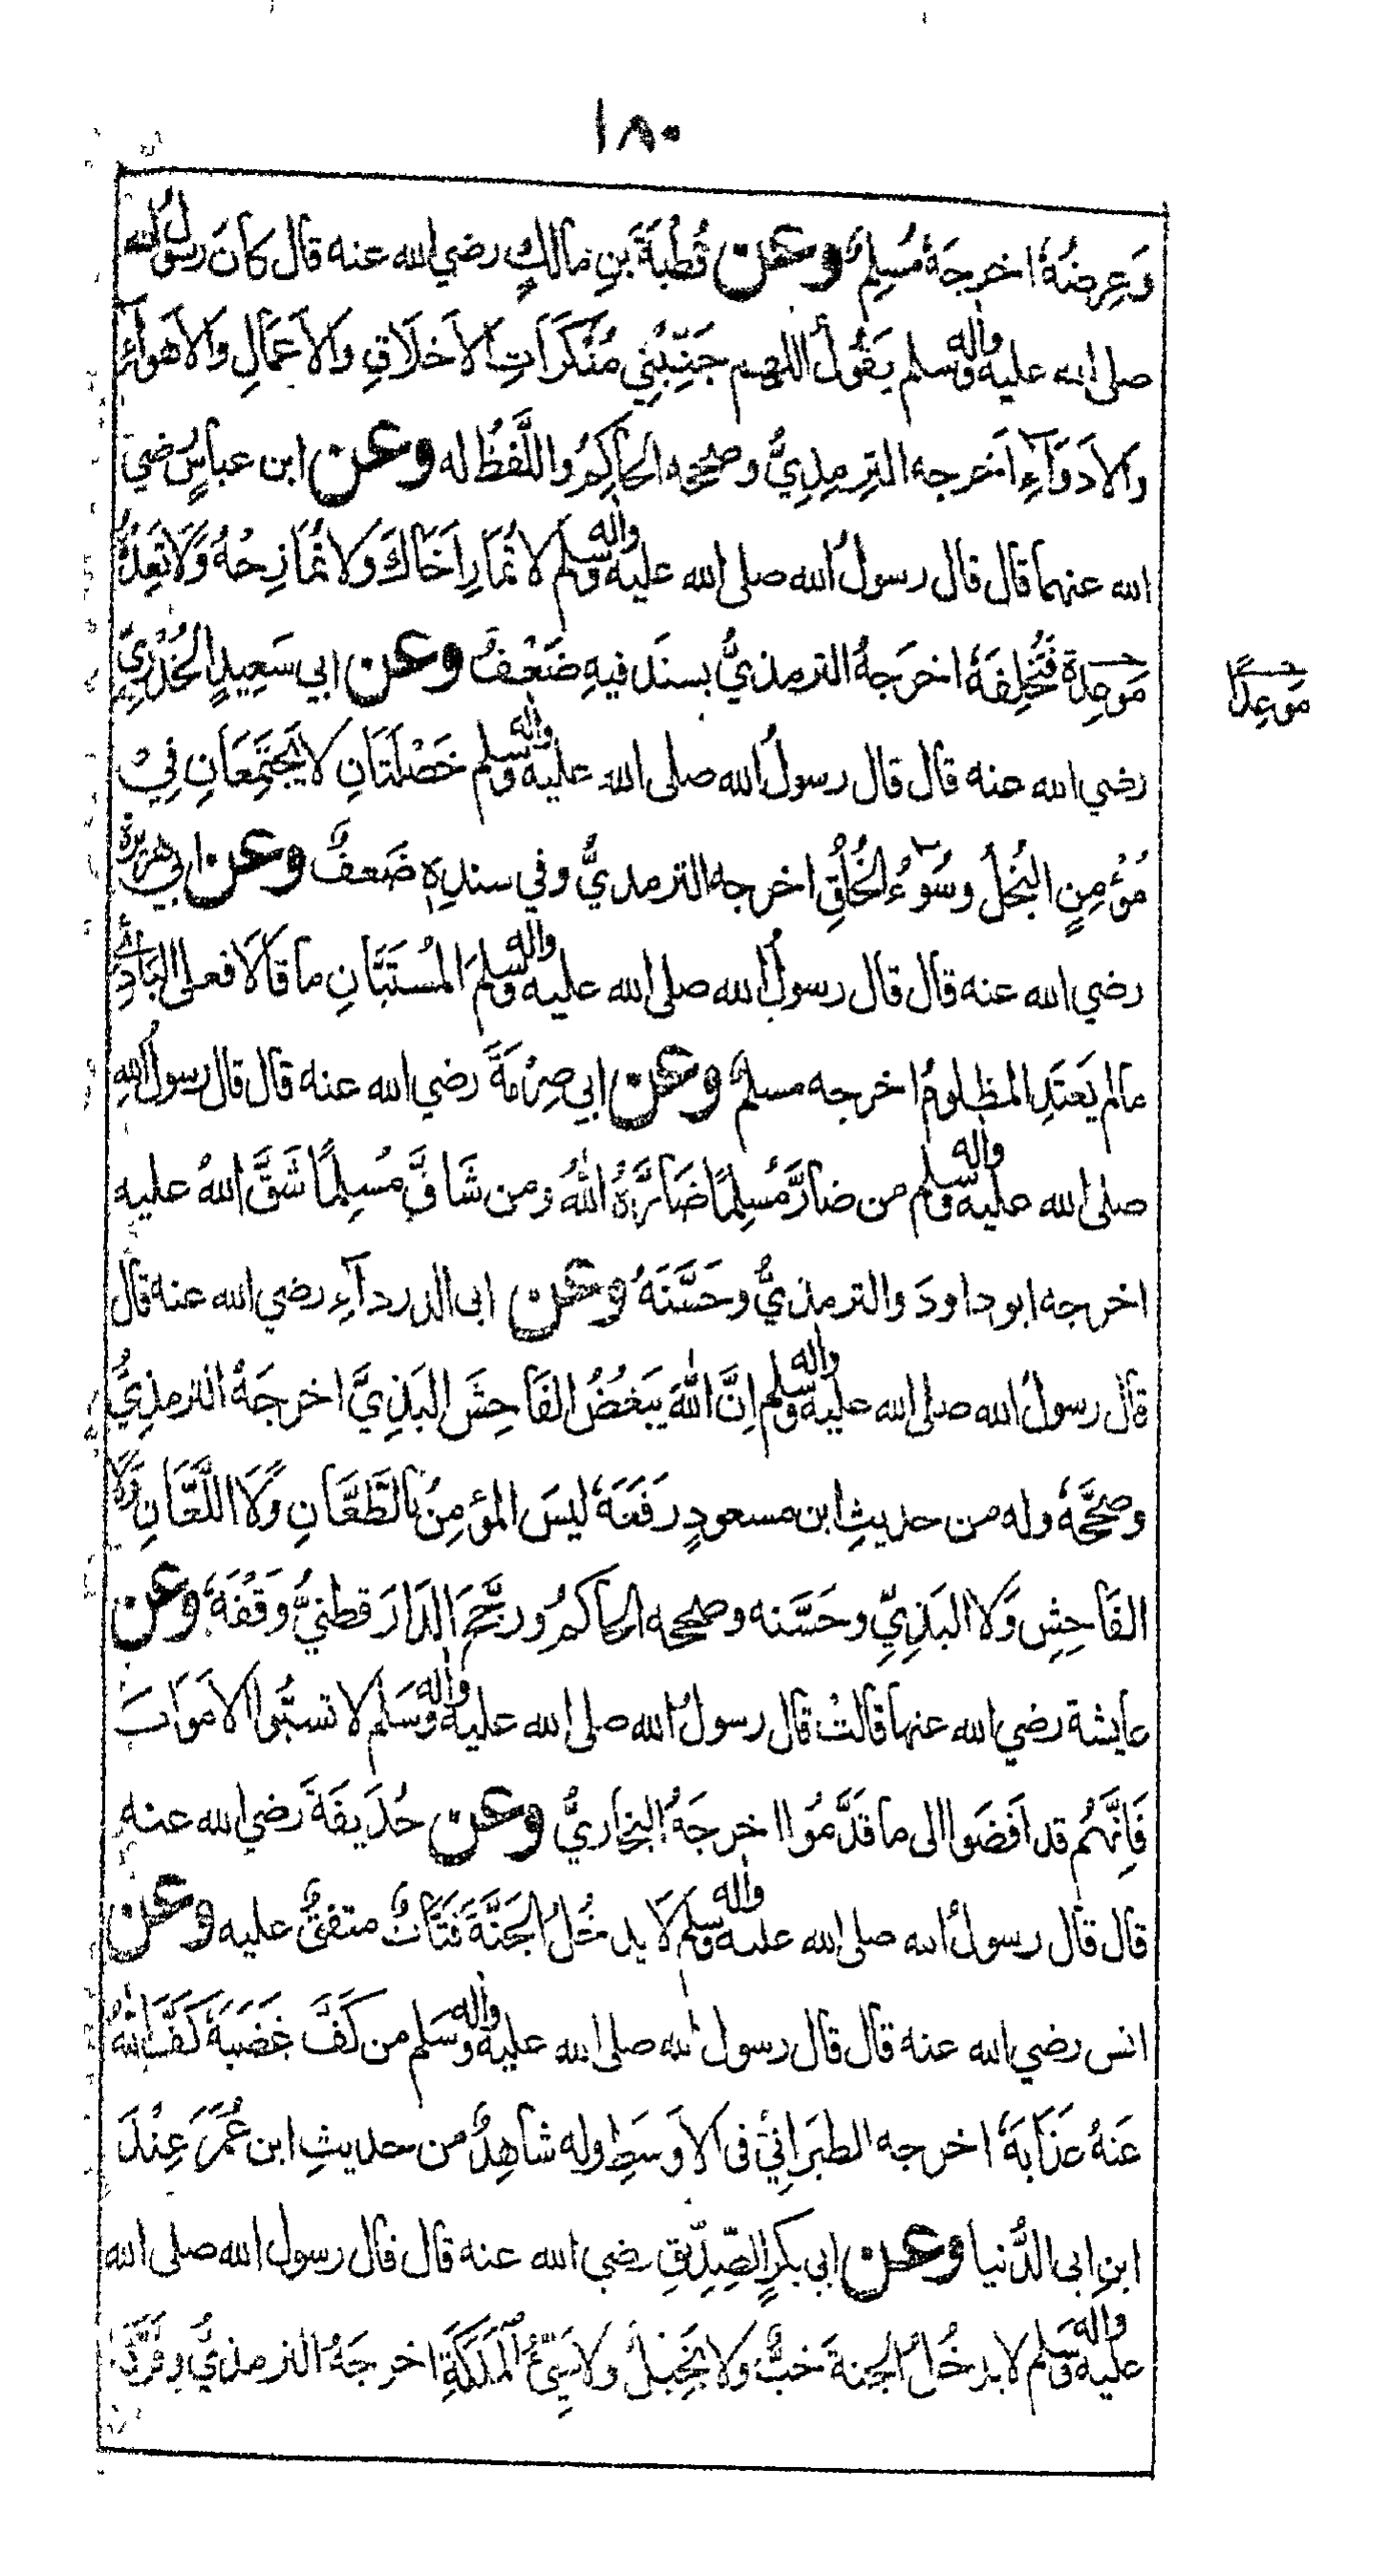 ١٨٠
وَعِرضُهُ اخرجَهُ مُسلِمٌ وعن قُطْبَةَ بنِ مالكٍ رضي الله عنه قال كانَ رسولُ الله
صلى الله عليه واٰله وسلم يَقُولُ اللهم جَنِّبْنِي مُنْكَرَاتِ الأخلَاقِ والأعمَالِ والأهوآءِ
والأدوَآءِ أخرجه الترمِذِيُّ وصححه الحاكِمُ واللَّفظُ له وعن ابن عباسٍ رضي
الله عنهما قال قال رسولُ الله صلى الله عليه واٰله وسلم لا تُمَارِ أخَاكَ ولا تُمازِحْهُ ولَا تَعِدْهُ
مَوعِدةً فتُخْلِفَهُ اخرَجَهُ الترمذيُّ بسنَد فيهِ ضَعْفٌ وعن ابي سَعِيدٍ الخُدْرِيِّ
مَوعِدًا
رضي الله عنه قال قال رسولُ الله صلى الله عليه واٰله وسلم خَصْلَتَانِ لا يَجتَمِعَانِ فِيْ
مُؤْمِنٍ البُخلُ وسُوءُ الخُلُقِ اخرجه الترمذيُّ وفي سندِهِ ضَعفٌ وعن ابي هريرةَ
رضي الله عنه قال قال رسولُ الله صلى الله عليه واٰله وسلمَ المُستَبَّانِ ما قالَا فعلى البَادِئِ
مالم يَعتَدِ المظلومُ اخرجه مسلمٌ وعن ابي صِرْمَةَ رضي الله عنه قال قال رسولُ اللهِ
صلى الله عليه واٰله وسلم من ضارَّ مُسلِمًا ضَارَّهُ اللهُ ومن شَاقَّ مُسلِمًا شَقَّ اللهُ عليه
اخرجه ابو داودَ والترمذيُّ وحَسَّنَهُ وعن ابى الدردآءِ رضي الله عنه قال
قال رسولُ الله صلى الله عليه واٰله وسلم إنَّ اللهَ يَبغُضُ الفَاحِشَ البَذِيَّ اخرجَهُ الترمذِيُّ
وصححَّهُ وله من حديثِ ابن مسعودٍ رَفَعَهُ ليسَ المؤمِنُ بالطَّعَّانِ ولَا اللَّعَّانِ ولَا
الفَاحِشِ ولا البَذِيِّ وحَسَّنه وصححه الحاكمُ ورجَّحَ الدَارَقطنيُّ وَقْفَهُ وعن
عايشة رضي الله عنها قالتْ قال رسولُ الله صلى الله عليه واٰله وسَلم لا تسبُّوا الأموَاتَ
فَإنَّهُم قد أفضَوا الى ما قَدَّمُوا اخرجَهُ البخاريُّ وعن حُذَيفَةَ رضي الله عنه
قال قال رسولُ الله صلى الله عليه واٰله وسلم لَا يدخُلُ الجَنَّةَ قَتَّاتٌ متفقٌ عليه وعن
انس رضي الله عنه قال قال رسول الله صلى الله عليه واٰله وسَلم من كَفَّ غَضَبَهُ كَفَّ اللهُ
عَنهُ عذَابَهُ اخرجه الطبَرانيّ فى الأوسَطِ وله شاهِدٌ من حديثِ ابن عُمَرَ عِنْدَ
ابنِ ابى الدُّنيا وعن ابي بكرٍ الصِّدِّيقِ رضي الله عنه قال قال رسول الله صلى الله
عليه واٰله وسَلم لا يدخُلُ الجنةَ خبٌّ ولا بَخِيلٌ ولا سَيِّئُ المَلَكَةِ اخرجَهُ الترمذيُّ وفَرَّقَهُ